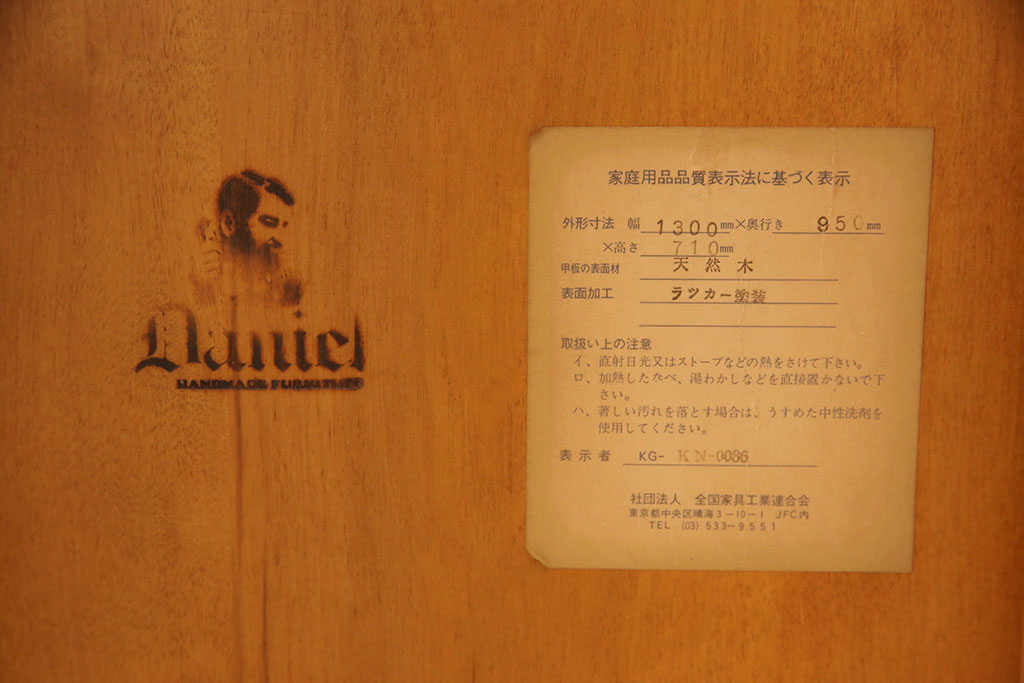 Daniel
HANDMADE FURNITURE
家庭用品品質表示法に基づく表示
外形寸法 幅 1300mm×奥行き 950mm
×高さ 710mm
甲板の表面材 天然木
表面加工 ラツカー塗装
取扱い上の注意
イ、直射日光又はストーブなどの熱をさけて下さい。
ロ、加熱したなべ、湯わかしなどを直接置かないで下
さい。
ハ、著しい汚れを落とす場合は、うすめた中性洗剤を
使用してください。
表示者 KG- KN-0086
社団法人 全国家具工業連合会
東京都中央区晴海3-10-1 JFC内
TEL (03) 533-9551